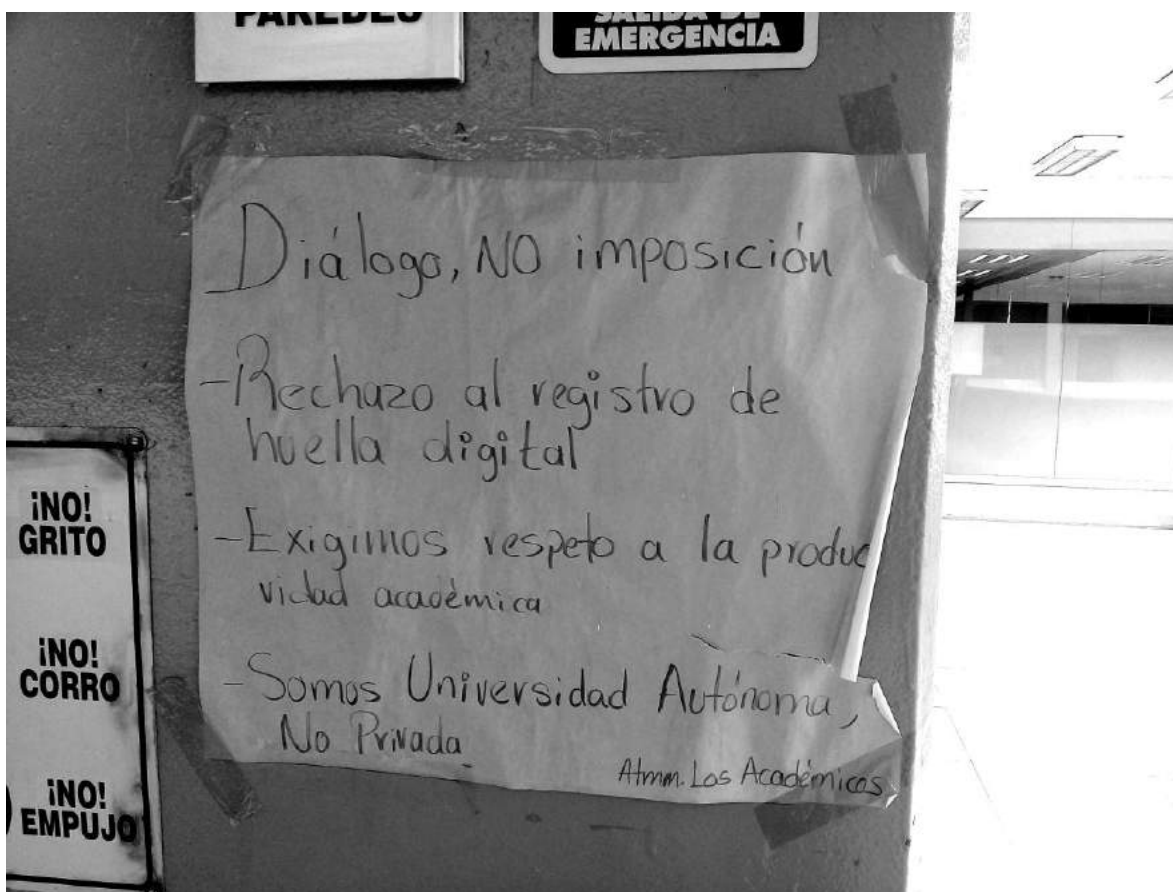 PAREDES
SALIDA DE
EMERGENCIA
Diálogo, NO imposición
-Rechazo al registro de
huella digital
-Exigimos respeto a la produc
vidad académica
-Somos Universidad Autónoma,
No Privada
Atmm. Los Académicos
¡NO!
GRITO
¡NO!
CORRO
¡NO!
EMPUJO